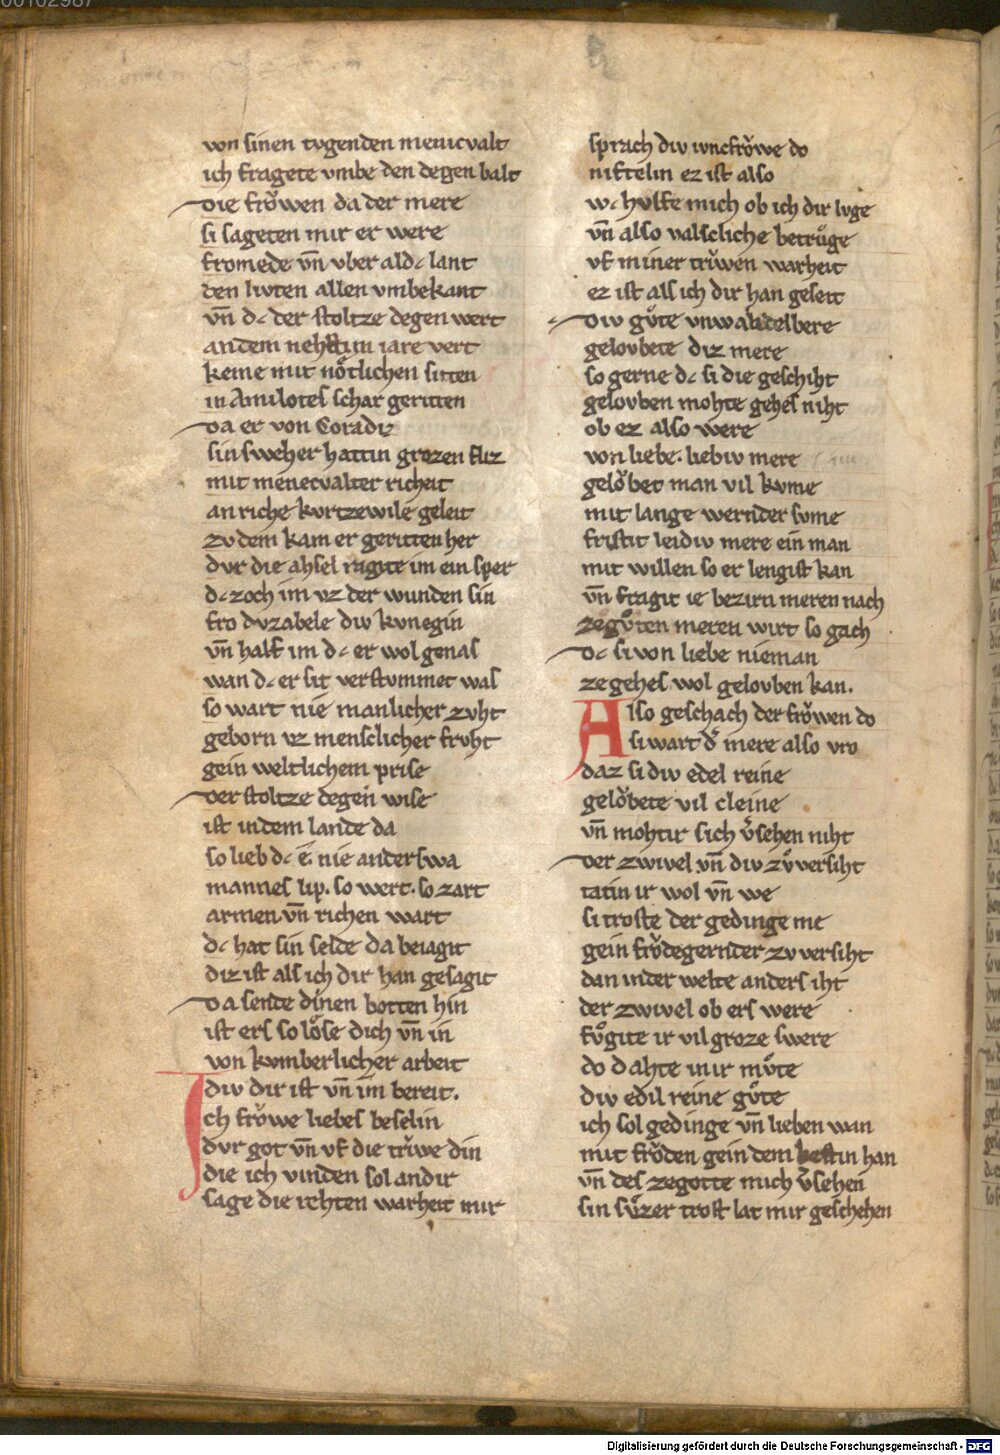 00102987
von sinen tvgenden menicvalt
ich fragete vmbe den degen balt
Die frŏwen da der mere
si sageten mir er were
fromede vn̄ vber al dc lant
den livten allen vmbekant
vn̄ dc der stoltze degen wert
an dem nehstin iare vert
keme mit nŏtlichen sitten
in Amilotes schar geritten
Da er von Coradiz
sin sweher hattin grozen fliz
mit menecvalter richeit
an riche kvrtzewile geleit
zv dem kam er geritten her
dvr die ahsel ragite im ein sper
dc zoch im vz der wunden sin
fro dvzabele div kvnegin
vn̄ half im dc er wol genas
wan dc er sit verstvmmet was
so wart nie manlicher zvht
geborn vz menslicher frvht
gein weltlichem prise
Der stoltze degen wise
ist in dem lande da
so lieb dc e nie anderswa
mannes lip. so wert. so zart
armen vn̄ richen wart
dc hat sin selde da beiagit
diz ist als ich dir han gesagit
Da sende dinen botten hin
ist ers so lŏse dich vn̄ in
von kvmberlicher arbeit
div dir ist vn̄ im bereit.
Ich frŏwe liebes beselin
dvr got vn̄ vf die trŭwe din
die ich vinden sol an dir
sage die rehten warheit mir
sprach div ivncfrŏwe do
niftelin ez ist also
wc hvlfe mich ob ich dir lvge
vn̄ also valscliche betrŭge
vf miner trŭwen warheit
ez ist als ich dir han geseit
Div gŏte vnwandelbere
gelovbete diz mere
so gerne dc si die geschiht
gelovben mohte gehes niht
ob ez also were
von liebe. liebiv mere
gelŏbet man vil kvme
mit lange wernder svme
fristit leidiv mere ein man
mit willen so er lengist kan
vn̄ fragit ie bezirn meren nach
ze gŏten meren wirt so gach
Dc si von liebe nieman
ze gehes wol gelovben kan.
Also geschach der frŏwen do
si wart d̾ mere also vro
daz si div edel reine
gelŏbete vil cleine
vn̄ mohtir sich v̾sehen niht
Der zwivel vn̄ div zŭversiht
tatin ir wol vn̄ we
si troste der gedinge me
gein frŏdegernder zvversiht
dan in der welte anders iht
der zwivel ob ers were
fŭgite ir vil groze swere
do dahte in ir mŭte
div edil reine gŏte
ich sol gedinge vn̄ lieben wan
mit frŏden gein dem bestin han
vn̄ des ze gotte mich v̾sehen
sin sŭzer trost lat mir geschehen
Digitalisierung gefördert durch die Deutsche Forschungsgemeinschaft - DFG